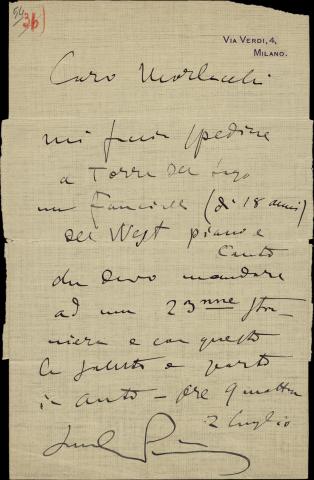 54
36)
Via Verdi, 4,
Milano.
Caro Morlacchi
mi faccia spedire
a Torre del Lago
una Fanciulla (di 18 anni)
del West piano e
Canto
che devo mandare
ad una 23nne stra-
niera e con questo
la saluto e parto
in auto - ore 9 mattina
2 luglio